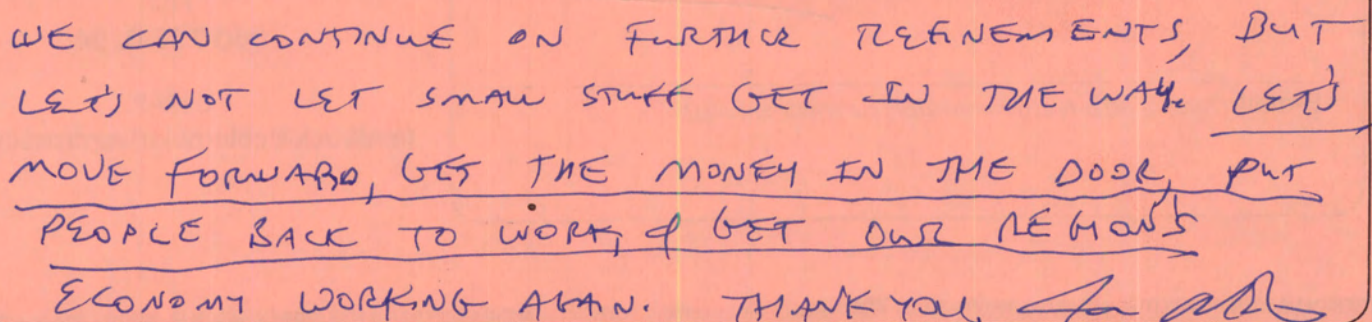 WE CAN CONTINUE ON FURTHER REFINEMENTS, BUT
LET'S NOT LET SMALL STUFF GET IN THE WAY. LET'S
MOVE FORWARD, GET THE MONEY IN THE DOOR, PUT
PEOPLE BACK TO WORK, & GET OUR REGION'S
ECONOMY WORKING AGAIN. THANK YOU,